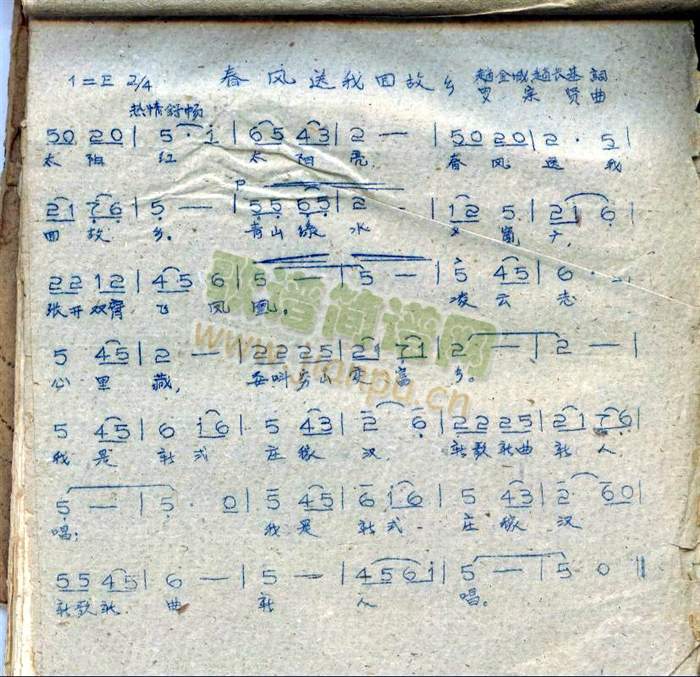 1=E 2/4 春风送我回故乡 赵金城 赵长基 词
热情舒畅 罗宗贤曲
50 20 | 5·i | 65 43 | 2 — | 50 20 | 2·5 |
太阳红 太阳亮, 春风送我
21 76 | 5 — | 55 65 | 2 — | 12 5 | 21 6 |
P
回故乡。 青山绿水
22 12 | 45 6 | 5 — | 5 — | 5 45 | 6· |
张开双臂飞凤凰。 凌云志
歌谱简谱网
www.jianpu.cn
5 45 | 2 — | 22 25 | 21 71 | 2 — | 2 — |
心里藏, 要叫穷山变富乡。
5 45 | 6 i6 | 5 43 | 2 6 | 22 25 | 21 76 |
我是新式庄稼汉, 新歌新曲新人
5 — | 5·0 | 5 45 | 6 i6 | 5 43 | 2·60 |
唱; 我是新式庄稼汉
55 45 | 6 — | 5 — | 456i | 5 — | 5 0 ‖
新歌新曲新人唱。